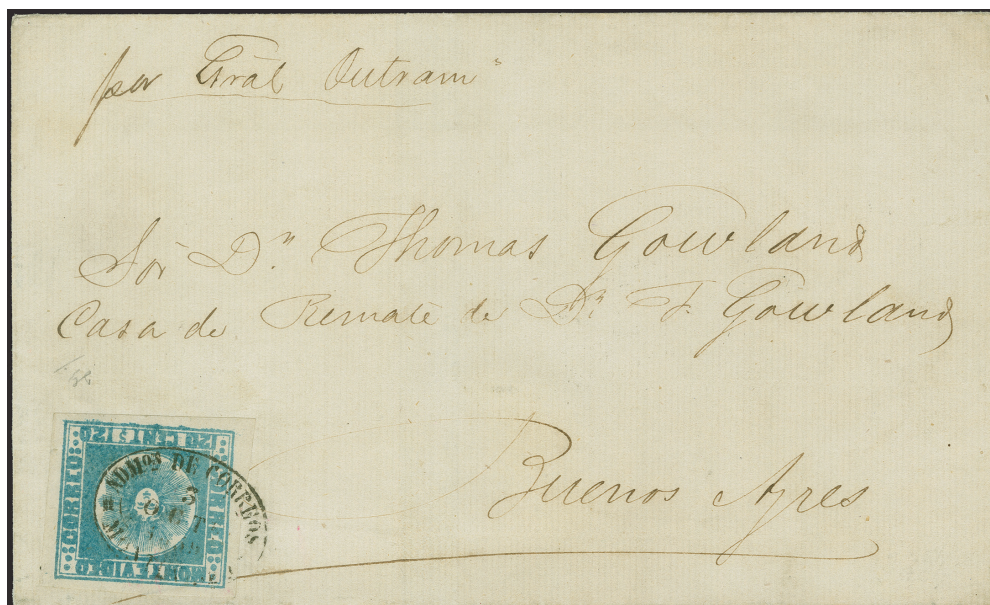 por Grâl Outram"
Sor Dn Thomas Gowland
Casa de Remate de Dn F. Gowland
Buenos Ayres
120 CENTs 120
CORREO
CORREO
MONTEVIDEO
ADMos DE CORREOS
OCT